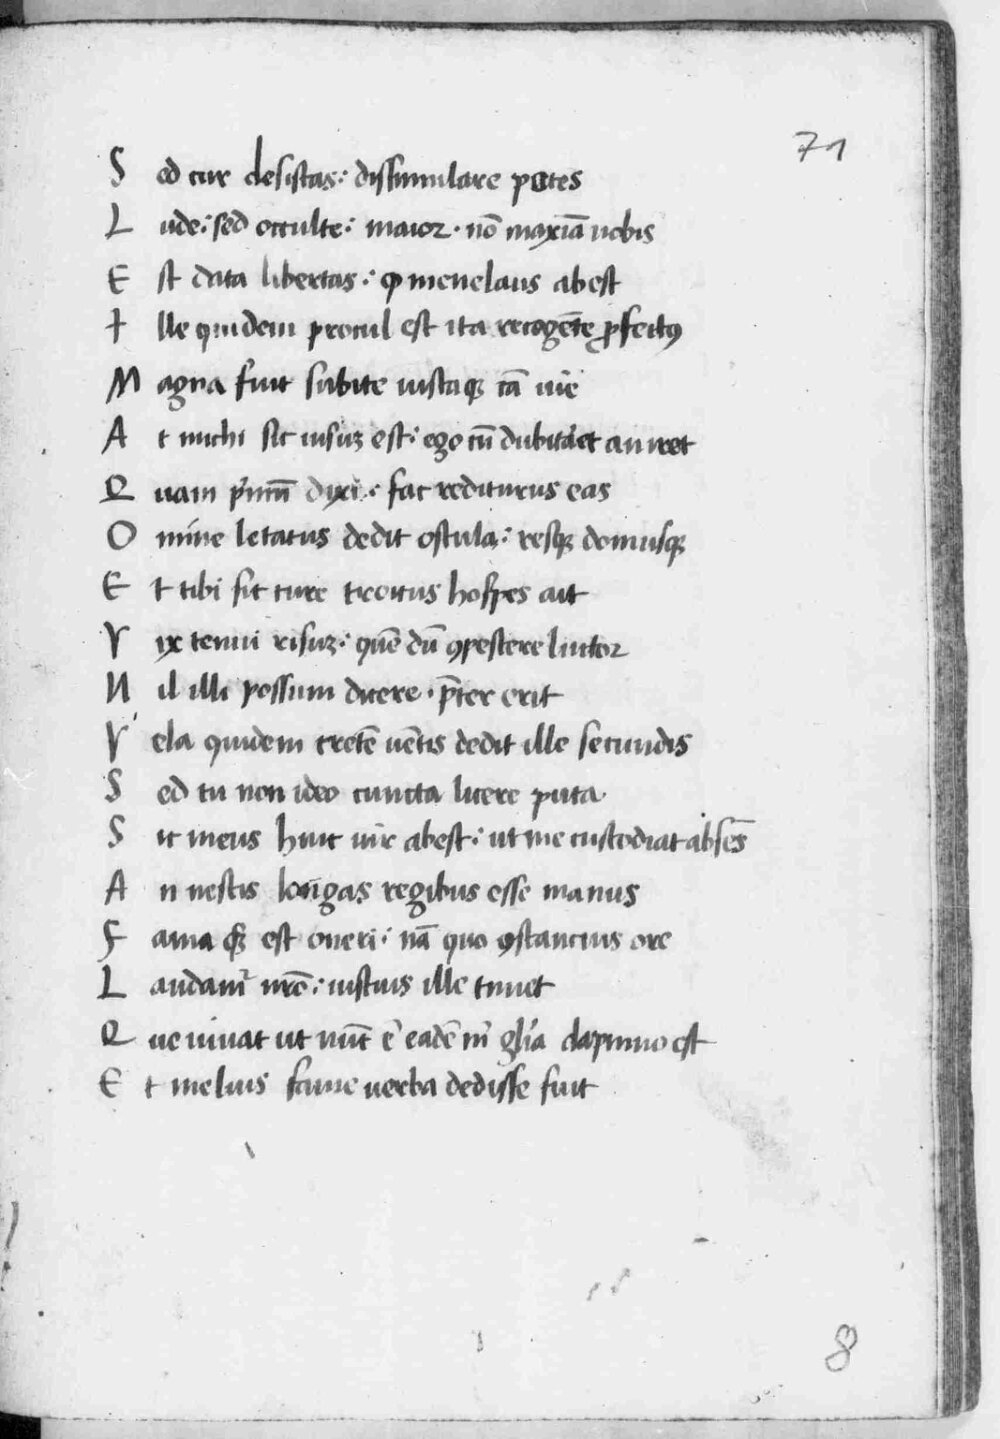 71
S ed cur desistas: dissimulare potes
L ude: sed occulte: maior. nō maxīa nobis
E st data libertas: ꝙ menelaus abest
I lle quidem procul est ita recogēte ꝓfectꝰ
M agna fuit subite iustaqꝫ cā uie
A t michi sic uisuꝫ est: ego cū dubitaret an iret
Q uam p̄mū dixi: fac rediturus eas
O mine letatus dedit oscula: resqꝫ domusqꝫ
E t tibi sit cure troicus hospes ait
V ix tenui risuꝫ: quē dū ꝯpescere luctor
N il illi possum dicere. p̄ter erit
V ela quidem cretē uētis dedit ille secundis
S ed tu non ideo cuncta licere puta
S ic meus hinc uir abest: ut me custodiat absēs
A n nescis longas regibus esse manus
F ama qꝫ est oneri: nā quo ꝯstancius ore
L audamr̄ urō: iustius ille timet
Q ue iuuat ut nūc ē eadē m̄ glīa dapnno est
E t melius fame uerba dedisse fuit
8